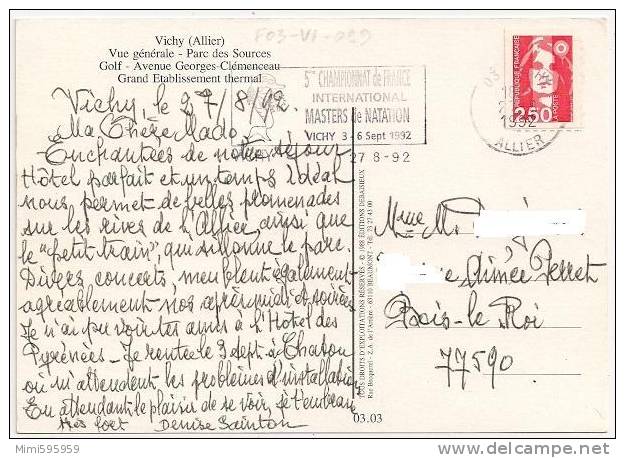 F03-VI-099
Vichy (Allier)
Vue générale - Parc des Sources
Golf - Avenue Georges-Clémenceau
Grand Etablissement thermal
5me CHAMPIONNAT de FRANCE
INTERNATIONAL
MASTERS de NATATION
VICHY 3-6 Sept 1992
27 8-92
1992
ALLIER
REPUBLIQUE FRANÇAISE
2,50
LA POSTE
Vichy, le 27/8/92.
Ma Chère Mado,
Enchantées de notre séjour
Hôtel parfait et un temps idéal
nous permet de belles promenades
sur les rives de l'Allier, ainsi que
le "petit train", qui sillonne le parc.
Divers concerts, meublent également
agréablement nos après midi et soirées
Je n'ai pu voir tes amis à l'Hôtel des
Pyrénées - Je rentre le 3 sept à Chatou
où m'attendent les problèmes d'installation
En attendant le plaisir de se voir, je t'embrasse
très fort Denise Sainton
TOUS DROITS D'EXPLOITATIONS RÉSERVÉS - © 1988 EDITIONS DEBAISIEUX
Rue Becquerel - Z.A. de l'Artière - 63110 BEAUMONT - Tél. 73 27 43 00
03.03
Mme M.
Aimée Perret
Bois-le Roi
77590.
Mimi595959
delcampe.net